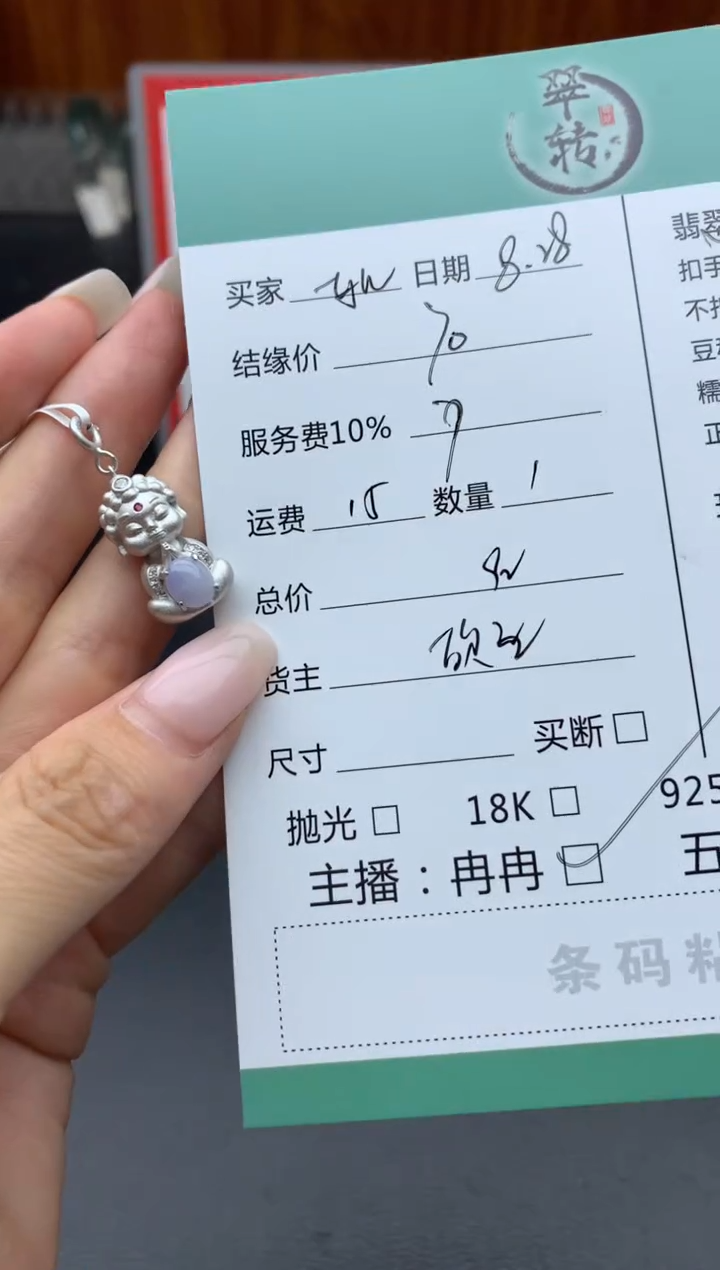 翠
转
买家 日期 8.28
结缘价 70
服务费10% 7
运费 15 数量 1
总价 92
货主
尺寸 买断
抛光 18K 925
主播：冉冉 五
条码粘
翡翠
扣手
不扌
豆
糯
正